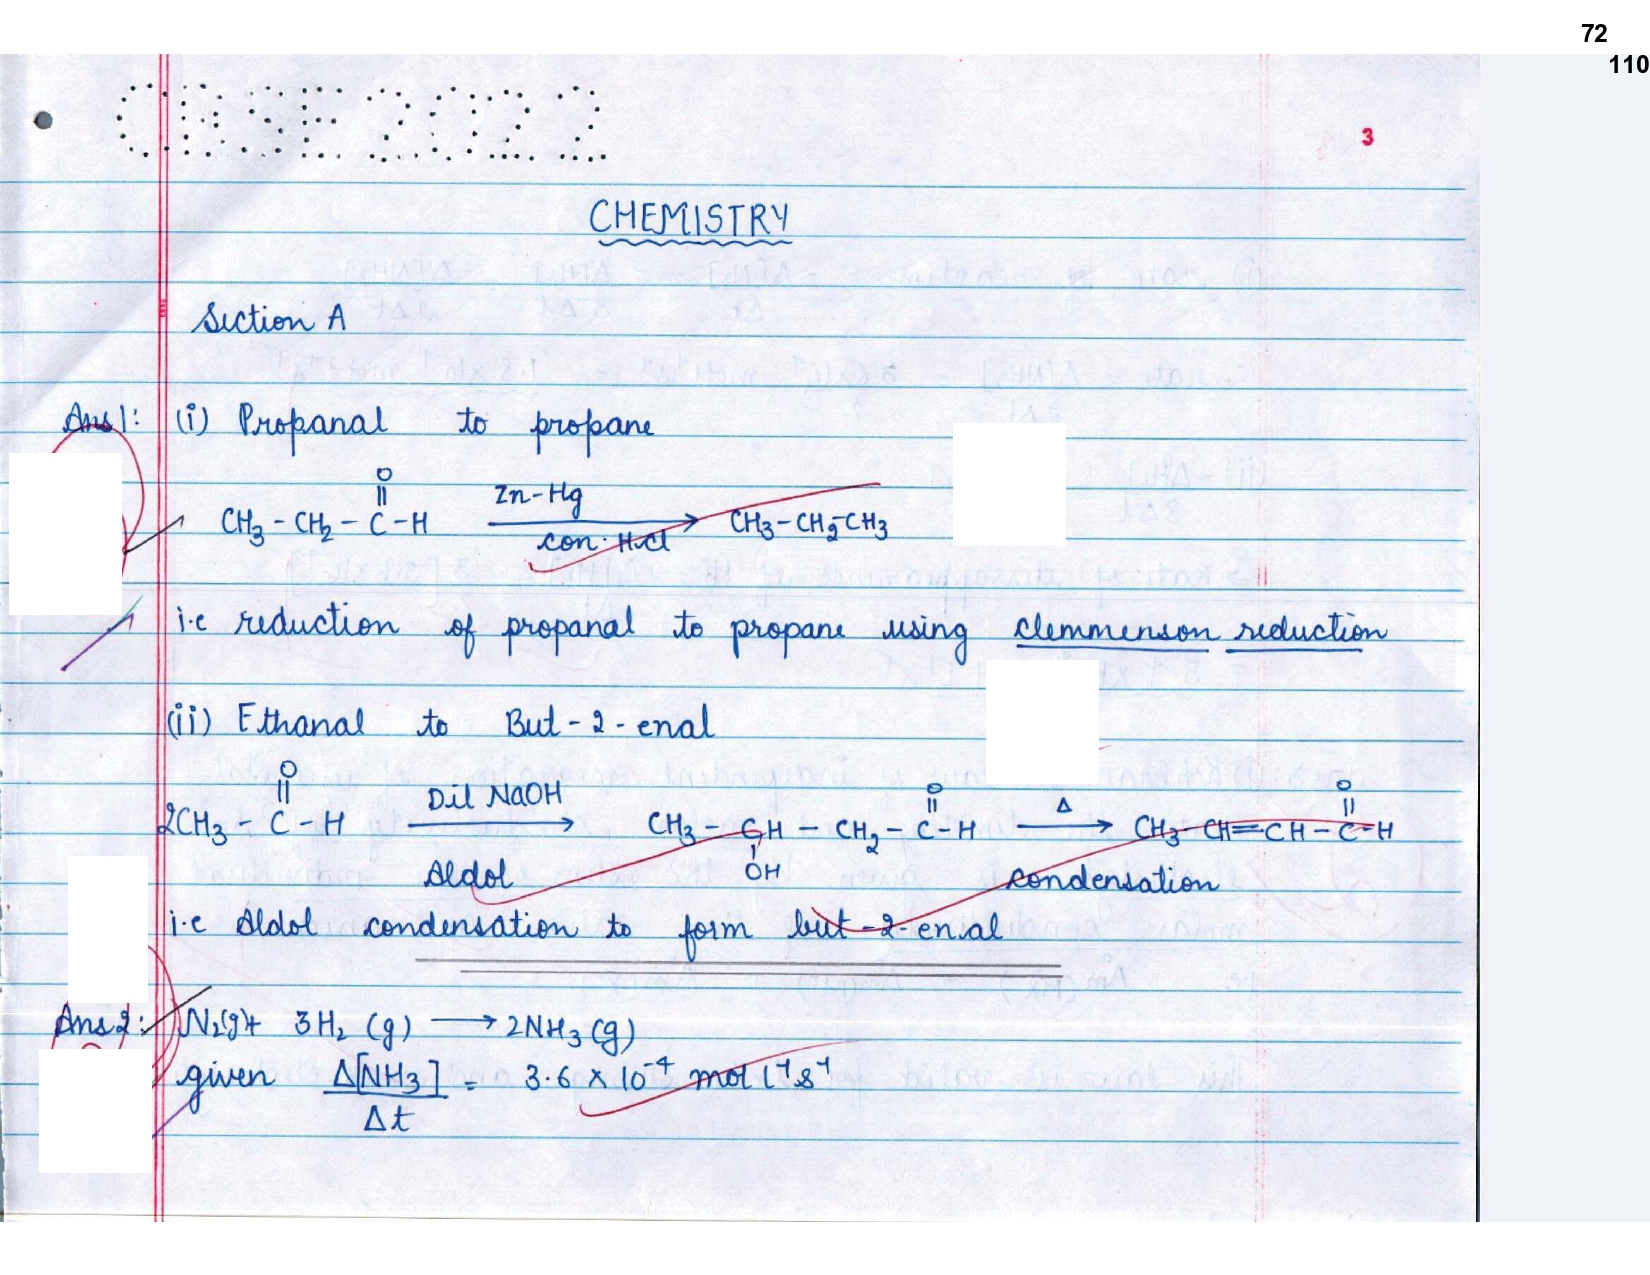 72
110
CBSE 2022
3
CHEMISTRY
Section A
Ans1: (i) Propanal to propane
O
||
CH3 - CH2 - C - H Zn-Hg ⟶ con. HCl CH3-CH2-CH3
i.e reduction of propanal to propane using clemmenson reduction
(ii) Ethanal to But-2-enal
O O O
|| || ||
2CH3 - C - H Dil NaOH ⟶ Aldol CH3 - CH - CH2 - C - H Δ ⟶ condensation CH3-CH=CH-C-H
OH
i.e Aldol condensation to form but-2-enal
Ans2: N2(g)+ 3H2 (g) ⟶ 2NH3 (g)
given Δ[NH3] = 3.6 × 10⁻⁴ mol L⁻¹ s⁻¹
Δt